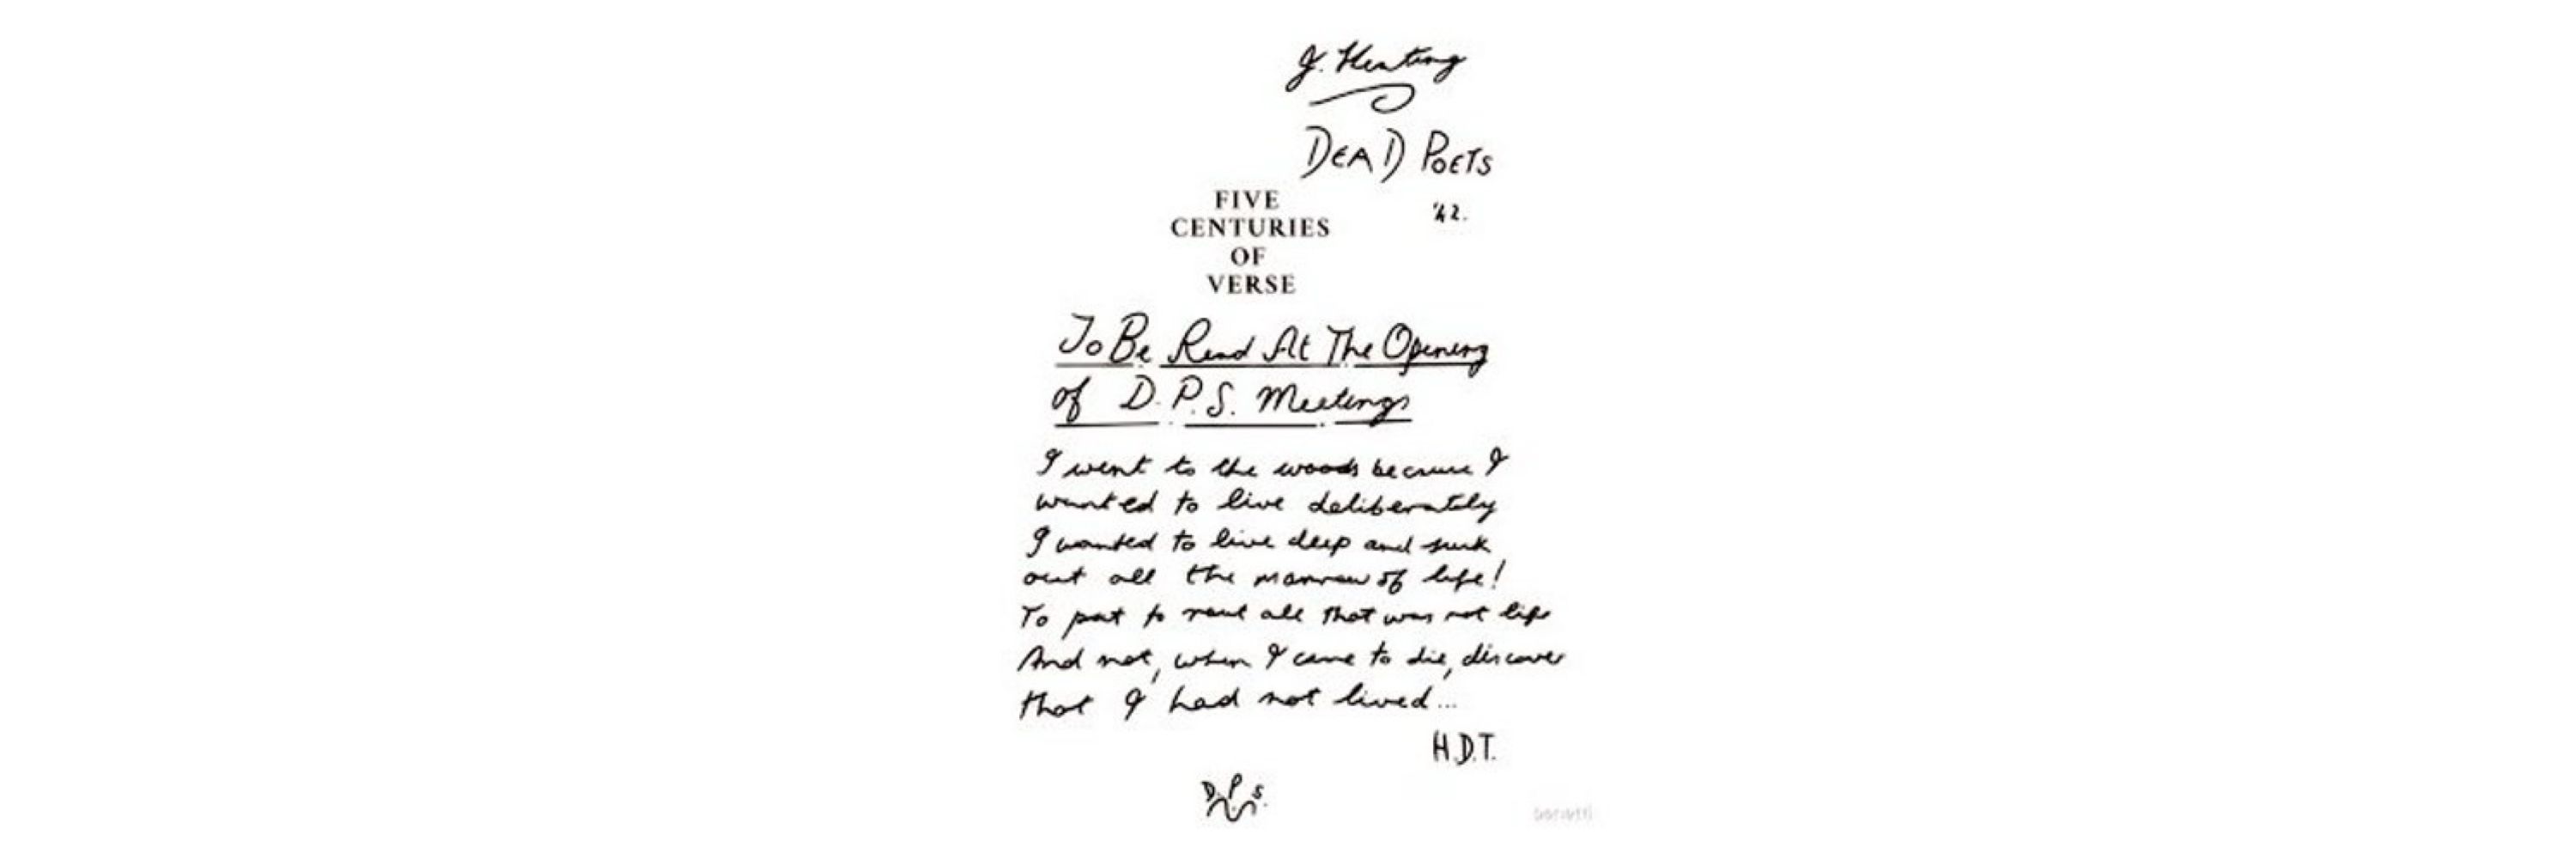 J. Keating
DEAD POETS
'42.
FIVE
CENTURIES
OF
VERSE
To Be Read At The Opening
of D.P.S. Meetings
I went to the woods because I
wanted to live deliberately
I wanted to live deep and suck
out all the marrow of life!
To put to rout all that was not life
And not, when I came to die, discover
that I had not lived...
H.D.T.
D.P.S.
benotti